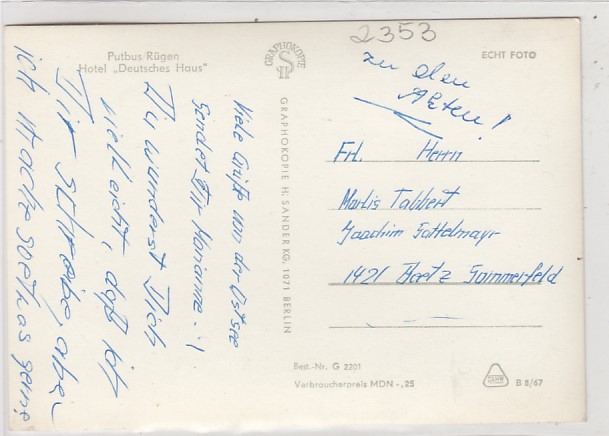 2353
Putbus/Rügen
Hotel „Deutsches Haus"
GRAPHOKOPIE
ECHT FOTO
zu den
Akten!
Viele Grüße von der Ostsee
sendet Dir Marianne. !
Du wunderst Dich
vielleicht, daß ich
Dir schreibe, aber
ich mache soetwas gerne
GRAPHOKOPIE H. SANDER KG, 1071 BERLIN
Frl. Herrn
Marlis Tabbert
Joachim Sattelmayr
1421 Sommerfeld
Best.-Nr. G 2201
Verbraucherpreis MDN -,25
B 8/67